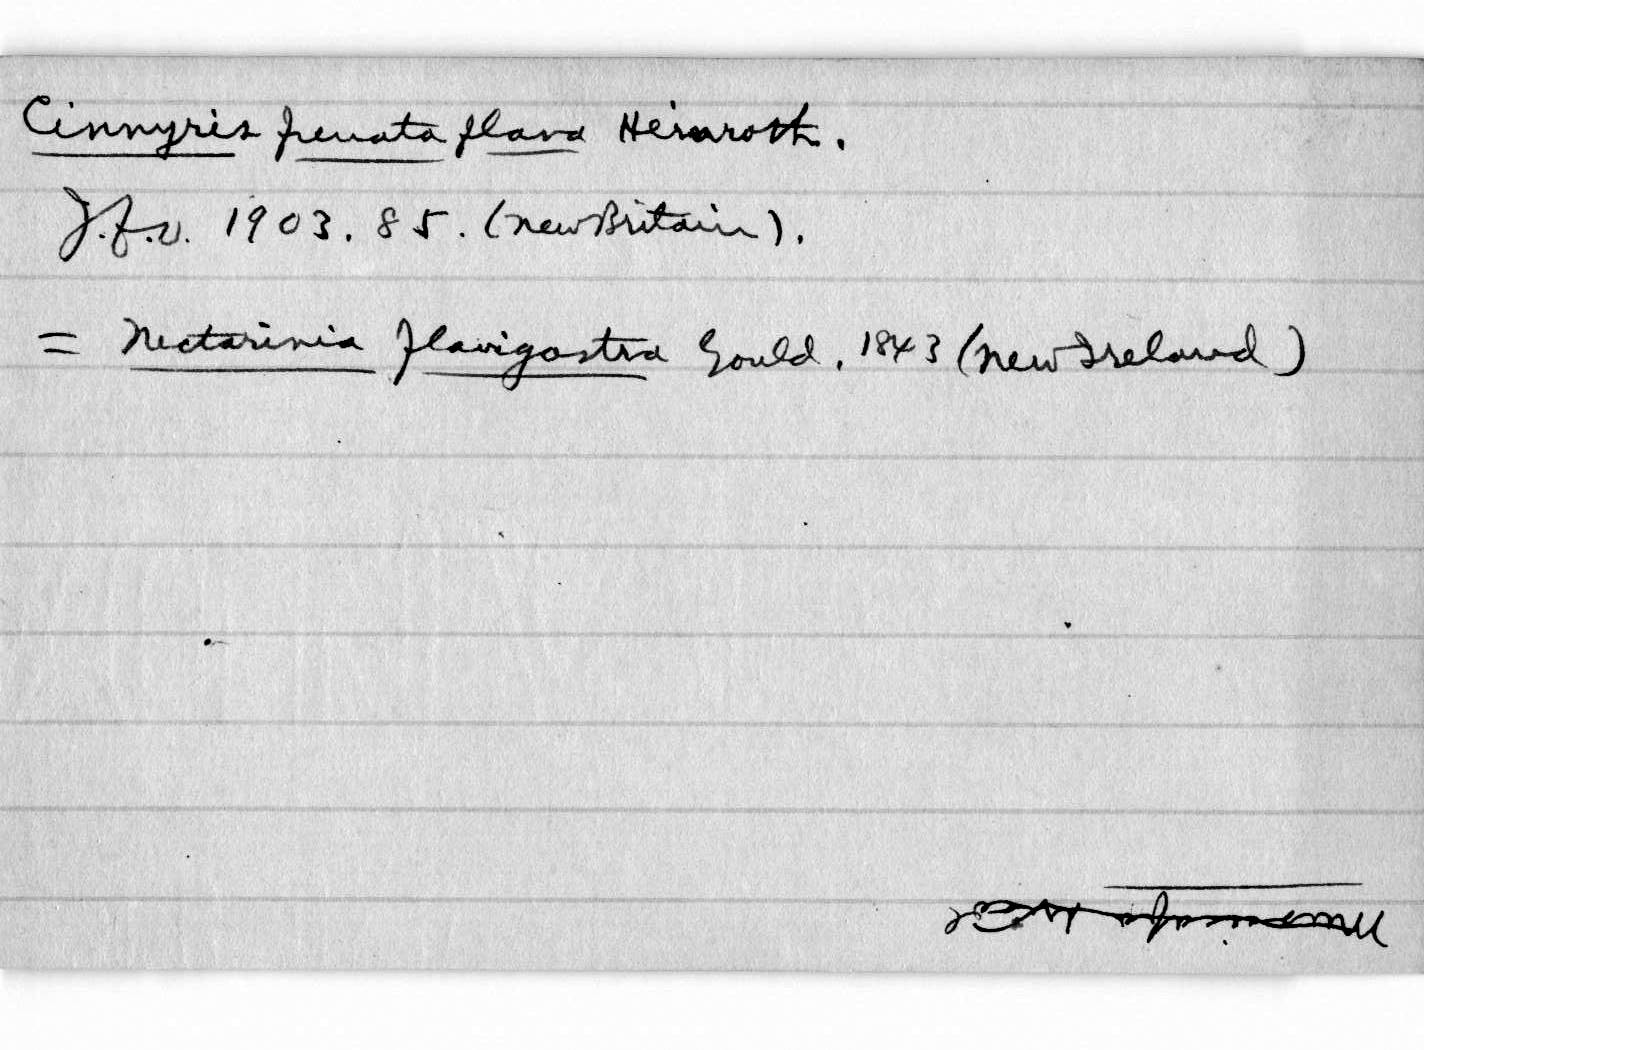 Cinnyris frenata flava Heinroth.
J.f.O. 1903. 85. (New Britain).
= Nectarinia flavigastra Gould, 1843 (New Ireland)